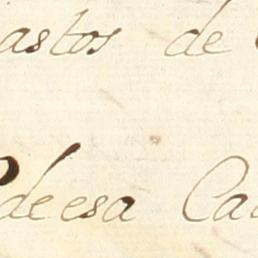 astos de
deesa Ca